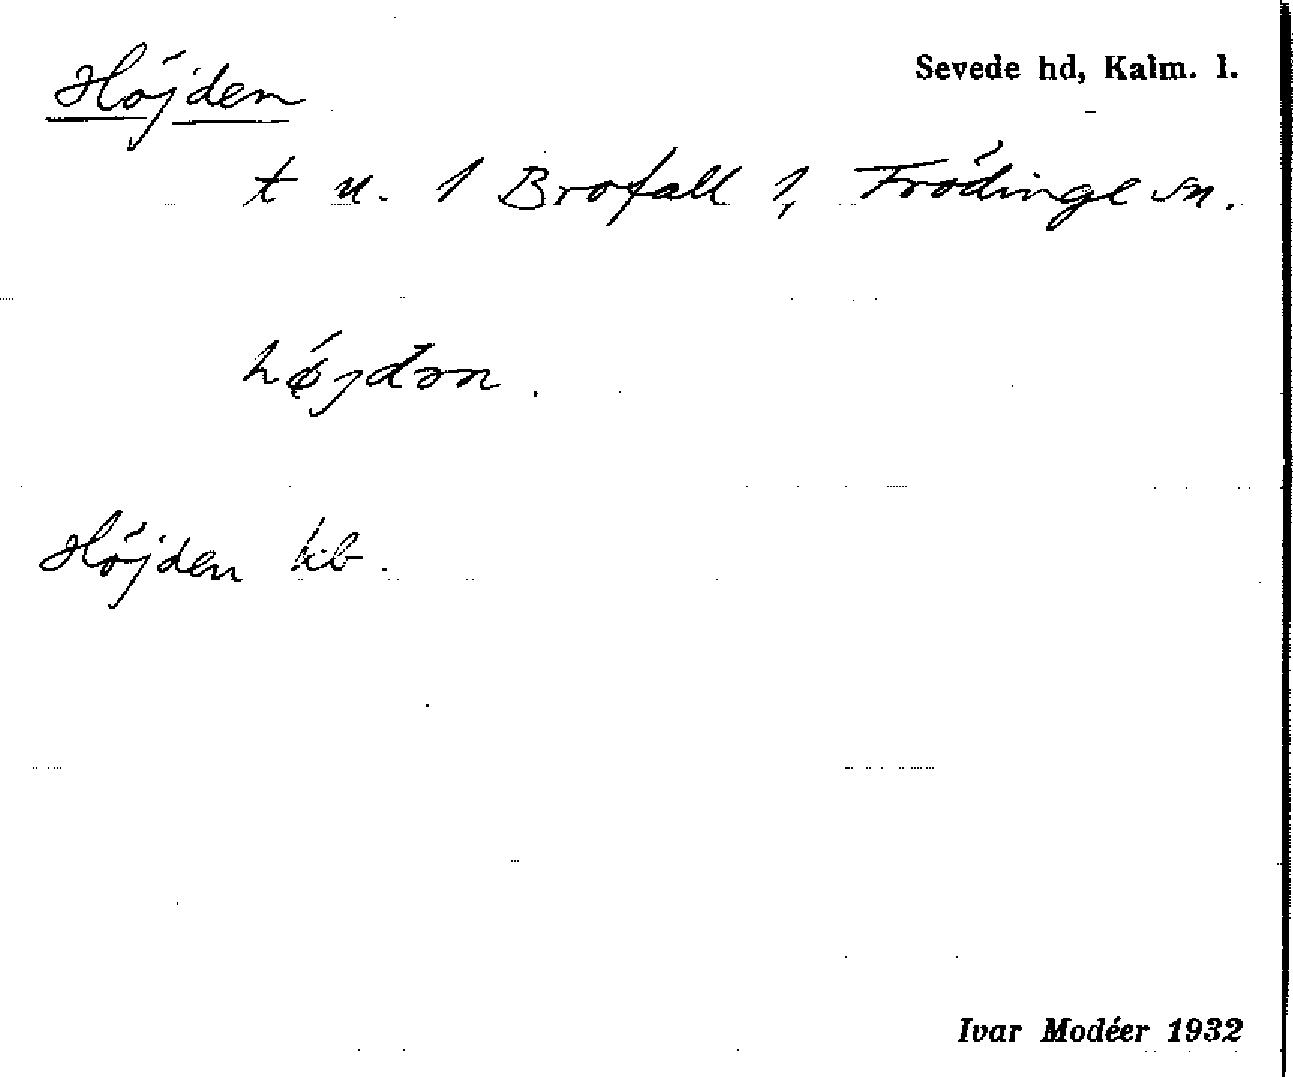 Höjden
Sevede hd, Kalm. l.
t u. 1 Brofall 1, Frödinge sn.
højdən.
Höjden kb.
Ivar Modéer 1932